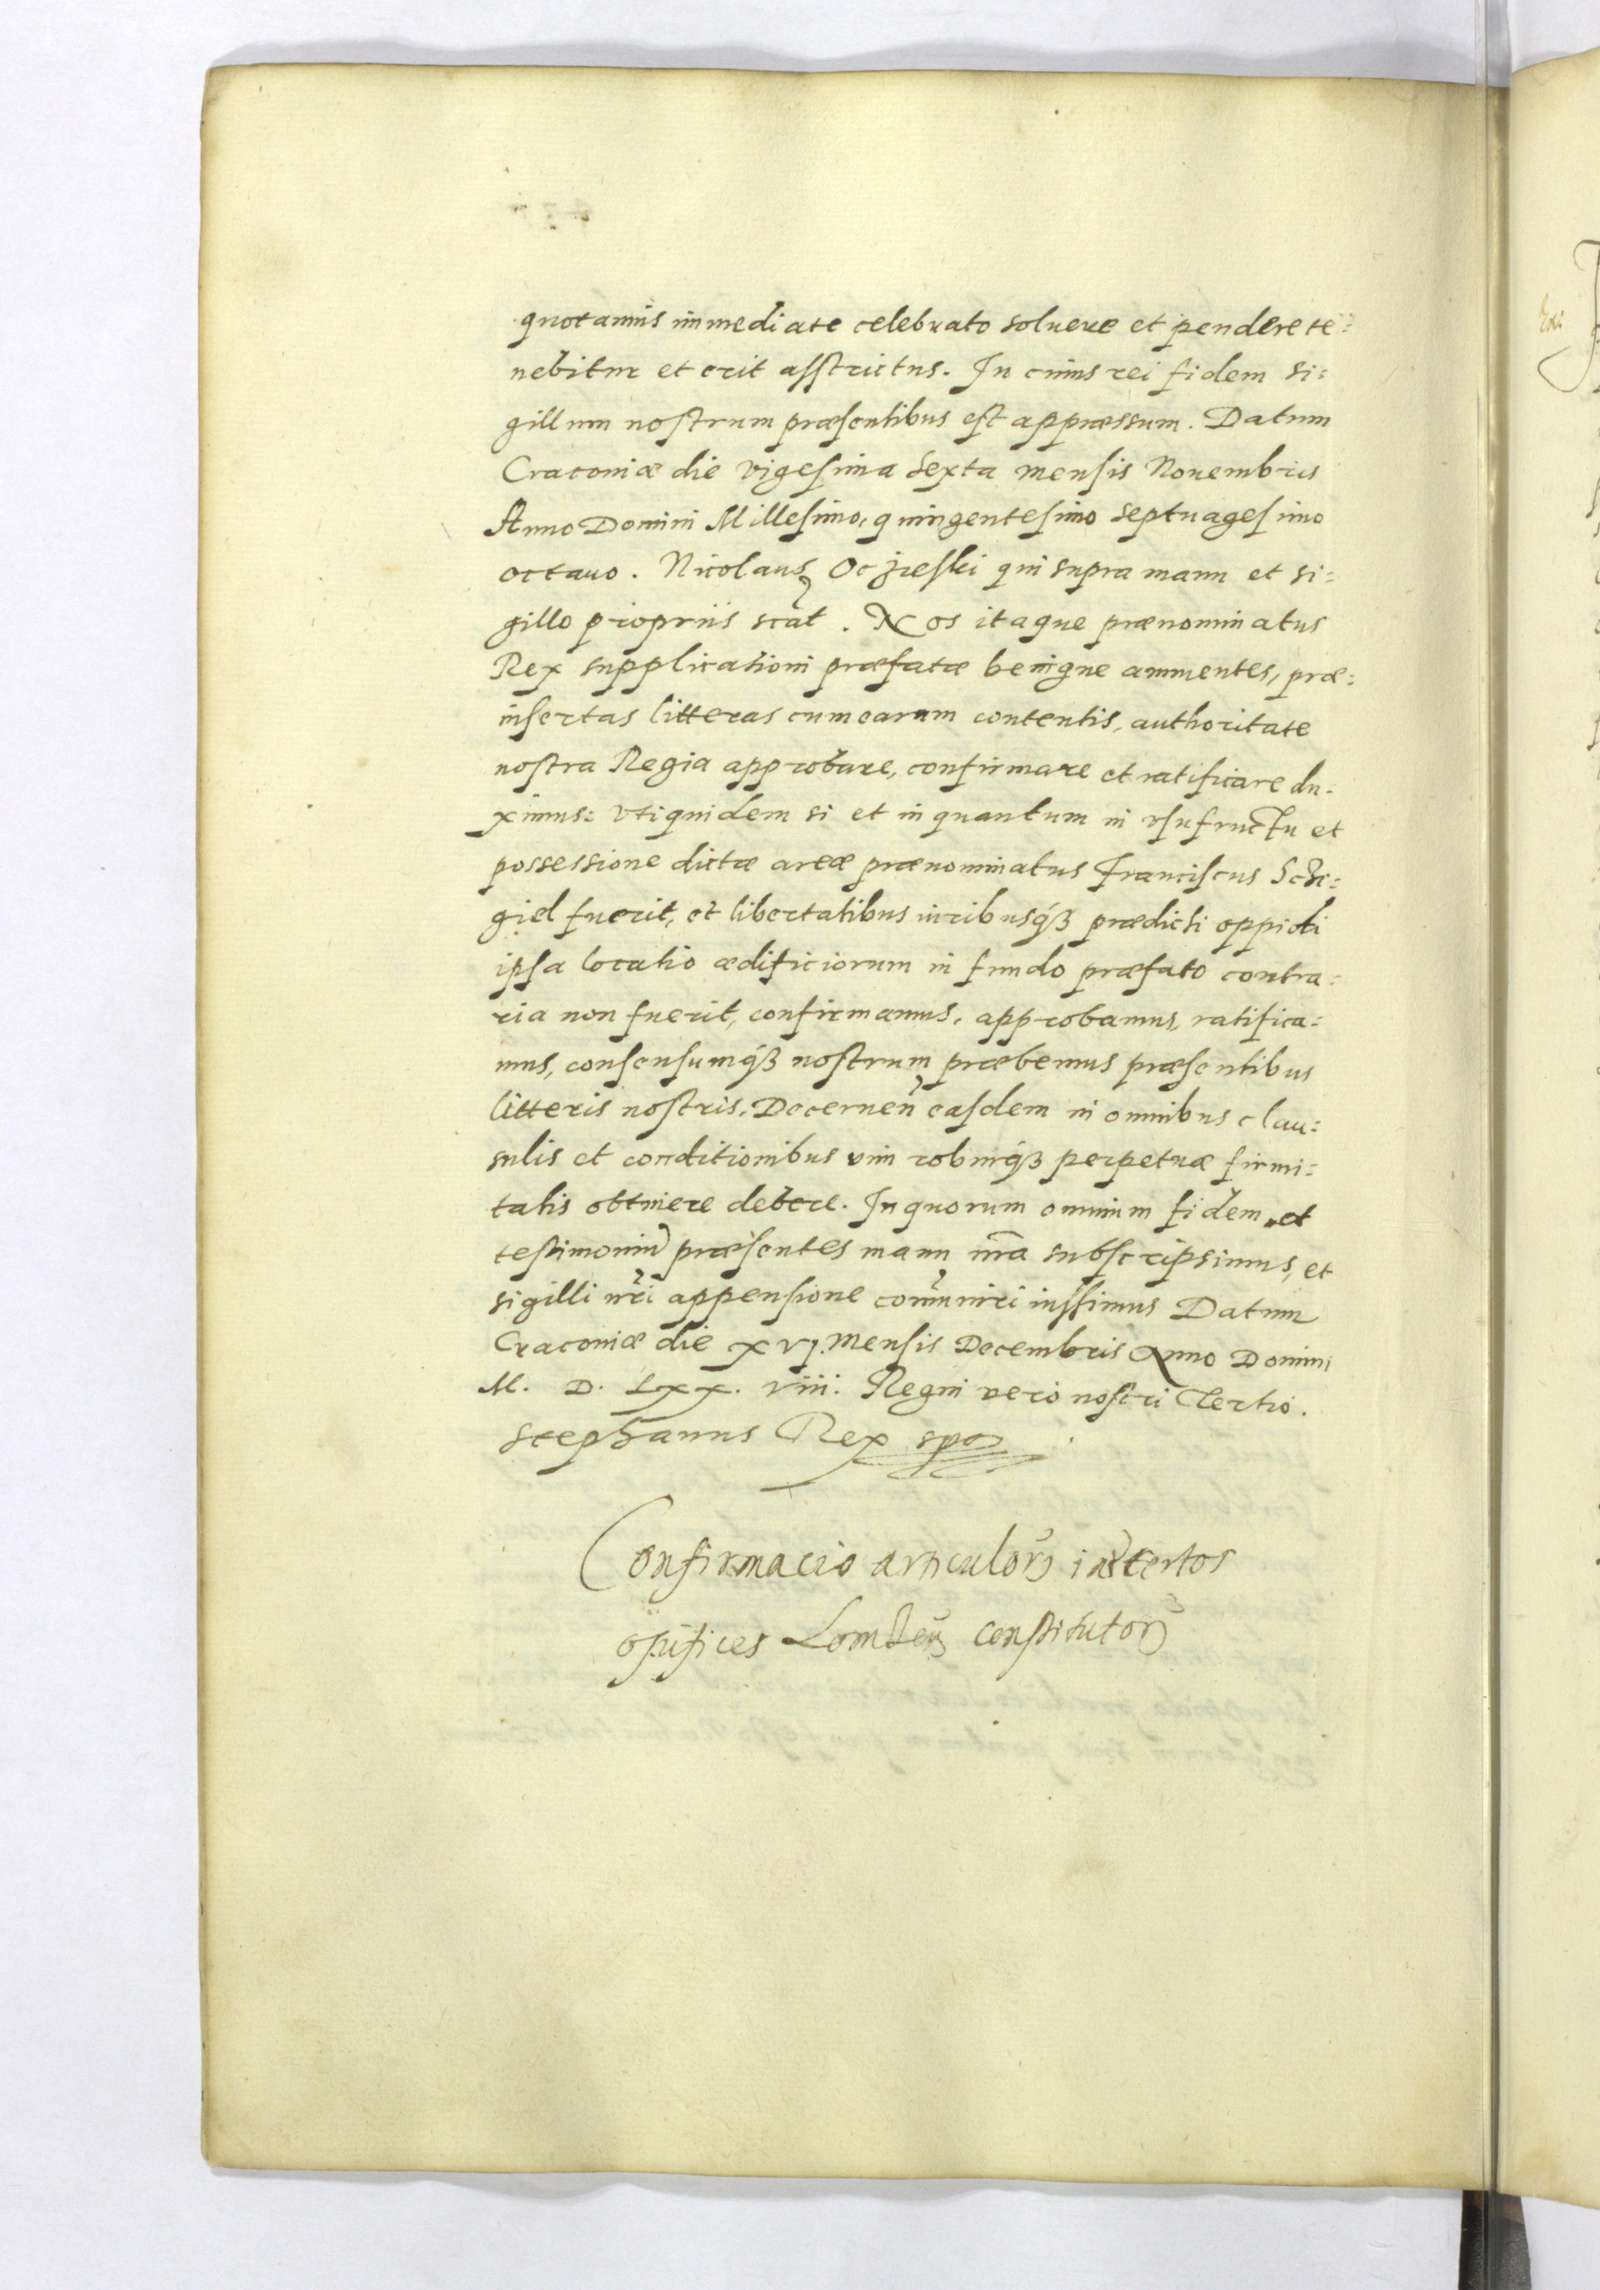 quotannis immediate celebrato soluere et pendere te:
nebitur et erit asstrictus. In cuius rei fidem si:
gillum nostrum præsentibus est appræssum. Datum
Cracouiæ die vigesima sexta mensis Nouembris
Anno Domini Millesimo, quingentesimo septuagesimo
octauo. Nicolaus Oczieski qui supra manu et si:
gillo propriis scat. Nos itaque prænominatus
Rex supplicationi præfatæ benigne annuentes, præ:
insertas litteras cum earum contentis, authoritate
nostra Regia approbare, confirmare et ratificare du:
ximus: vti quidem si et in quantum in vsufructu et
possessione dictæ areæ prænominatus Franciscus Sci:
giel fuerit, et libertatibus iuribusq3 prædicti oppidi
ipsa locatio ædificiorum in fundo præfato contra:
ria non fuerit, confirmamus, approbamus, ratifica:
mus, consensumq3 nostrum præbemus præsentibus
litteris nostris. Decernen easdem in omnibus clau:
sulis et conditionibus vim roburq3 perpetuæ firmi:
tatis obtinere debere. In quorum omnium fidem et
testimoniu præsentes manu nra subscripsimus, et
sigilli nri appensione communiri iussimus Datum
Cracouiæ die xvj. Mensis Decembris Anno Domini
M. D. Lxx. viii. Regni vero nostri Tertio.
Stephanus Rex
Confirmacio articulor inter certos
opifices constitutor